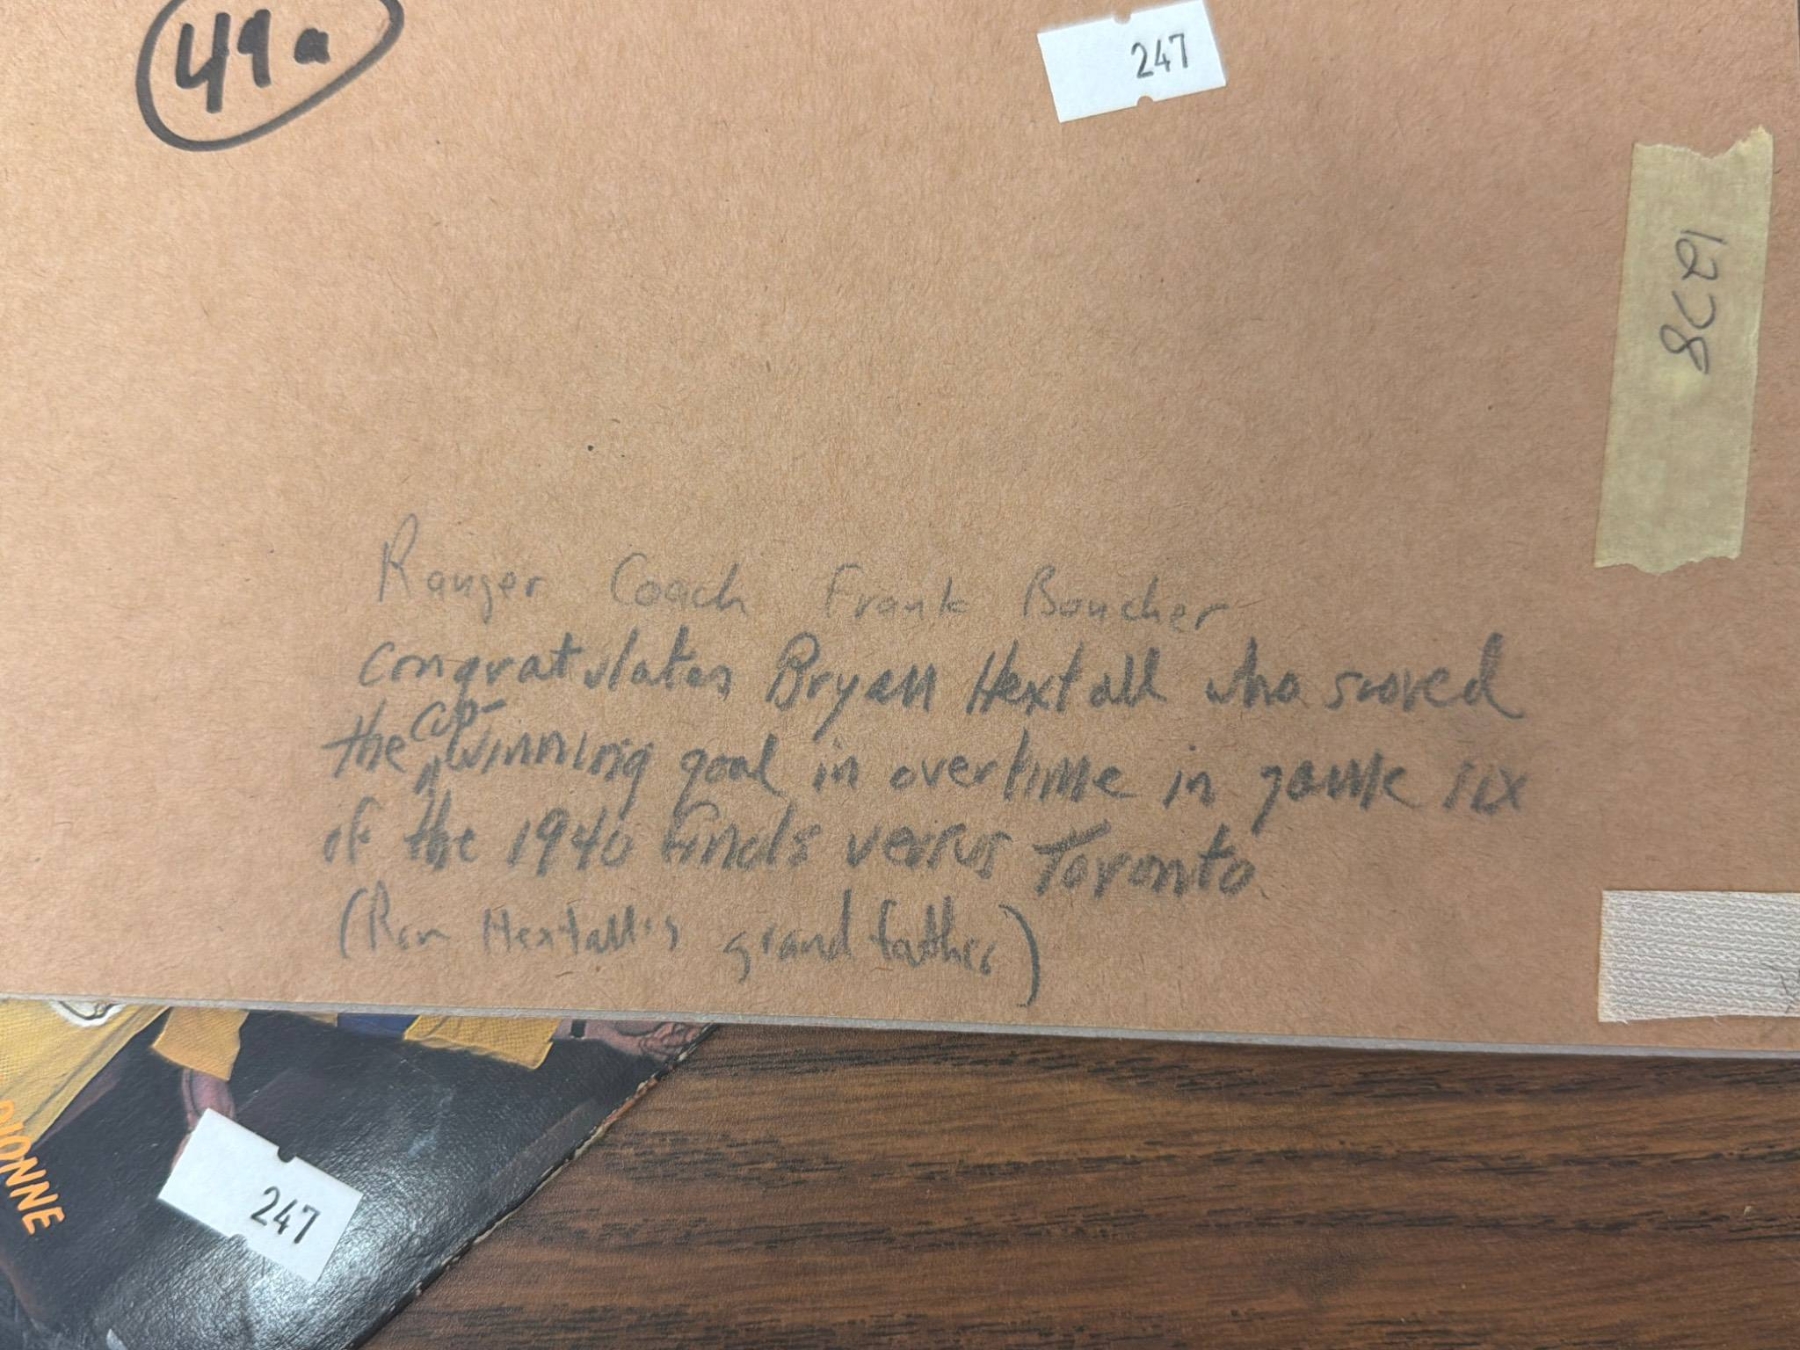 49a
247
1278
Ranger Coach Frank Boucher
congratulates Bryan Hextall who scored
the cup-winning goal in overtime in game six
of the 1940 finals versus Toronto
(Ron Hextall's grandfather)
DIONNE
247